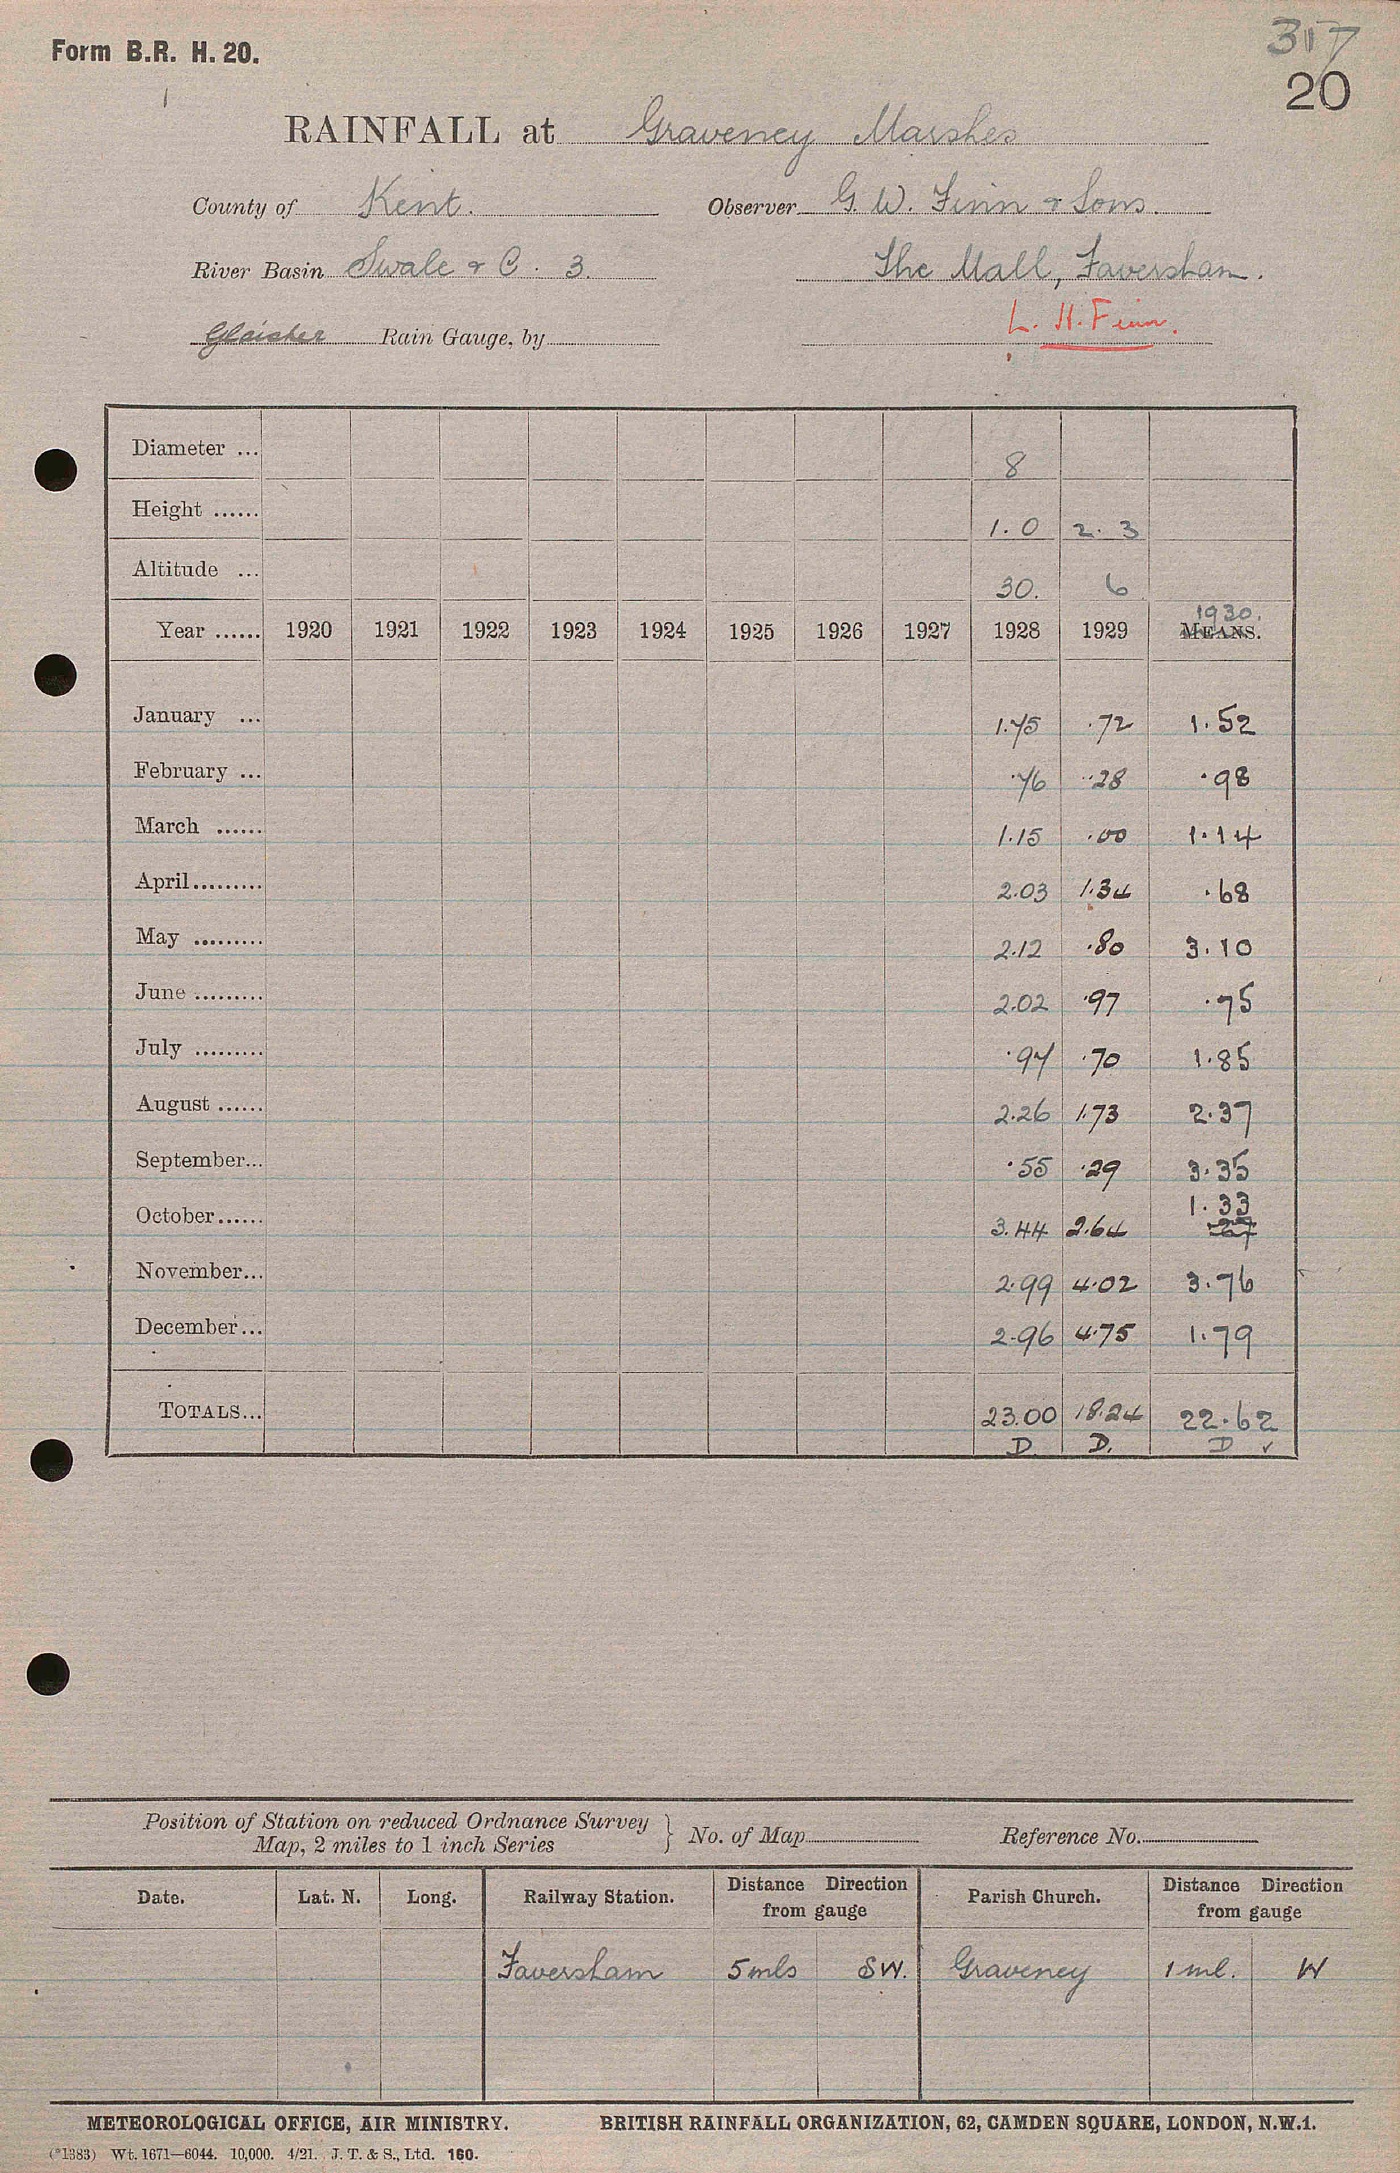 Form B.R. H. 20.
317
20
RAINFALL at Graveney Marshes
County of Kent. Observer G. W. Finn & Sons.
River Basin Swale & C. 3. The Mall, Faversham.
Glaisher Rain Gauge, by L. H. Finn.
Diameter ... 8
Height ...... 1.0 2.3
Altitude ... 30. 6
1930.
Year ...... 1920 1921 1922 1923 1924 1925 1926 1927 1928 1929 MEANS.
January ... 1.75 .72 1.52
February ... .76 .28 .98
March ...... 1.15 .00 1.14
April......... 2.03 1.34 .68
May ......... 2.12 .80 3.10
June ......... 2.02 .97 .75
July ......... .97 .70 1.85
August ...... 2.26 1.73 2.37
September... .55 .29 3.35
October...... 3.44 2.64 1.33
November... 2.99 4.02 3.76
December... 2.96 4.75 1.79
TOTALS... 23.00 18.24 22.62
D. D. D ✓
Position of Station on reduced Ordnance Survey
Map, 2 miles to 1 inch Series } No. of Map Reference No.
Date. Lat. N. Long. Railway Station. Distance Direction from gauge Parish Church. Distance Direction from gauge
Faversham 5 mls SW. Graveney 1 ml. W
METEOROLOGICAL OFFICE, AIR MINISTRY. BRITISH RAINFALL ORGANIZATION, 62, CAMDEN SQUARE, LONDON, N.W.1.
(*1383) Wt. 1671—6044. 10,000. 4/21. J. T. & S., Ltd. 160.